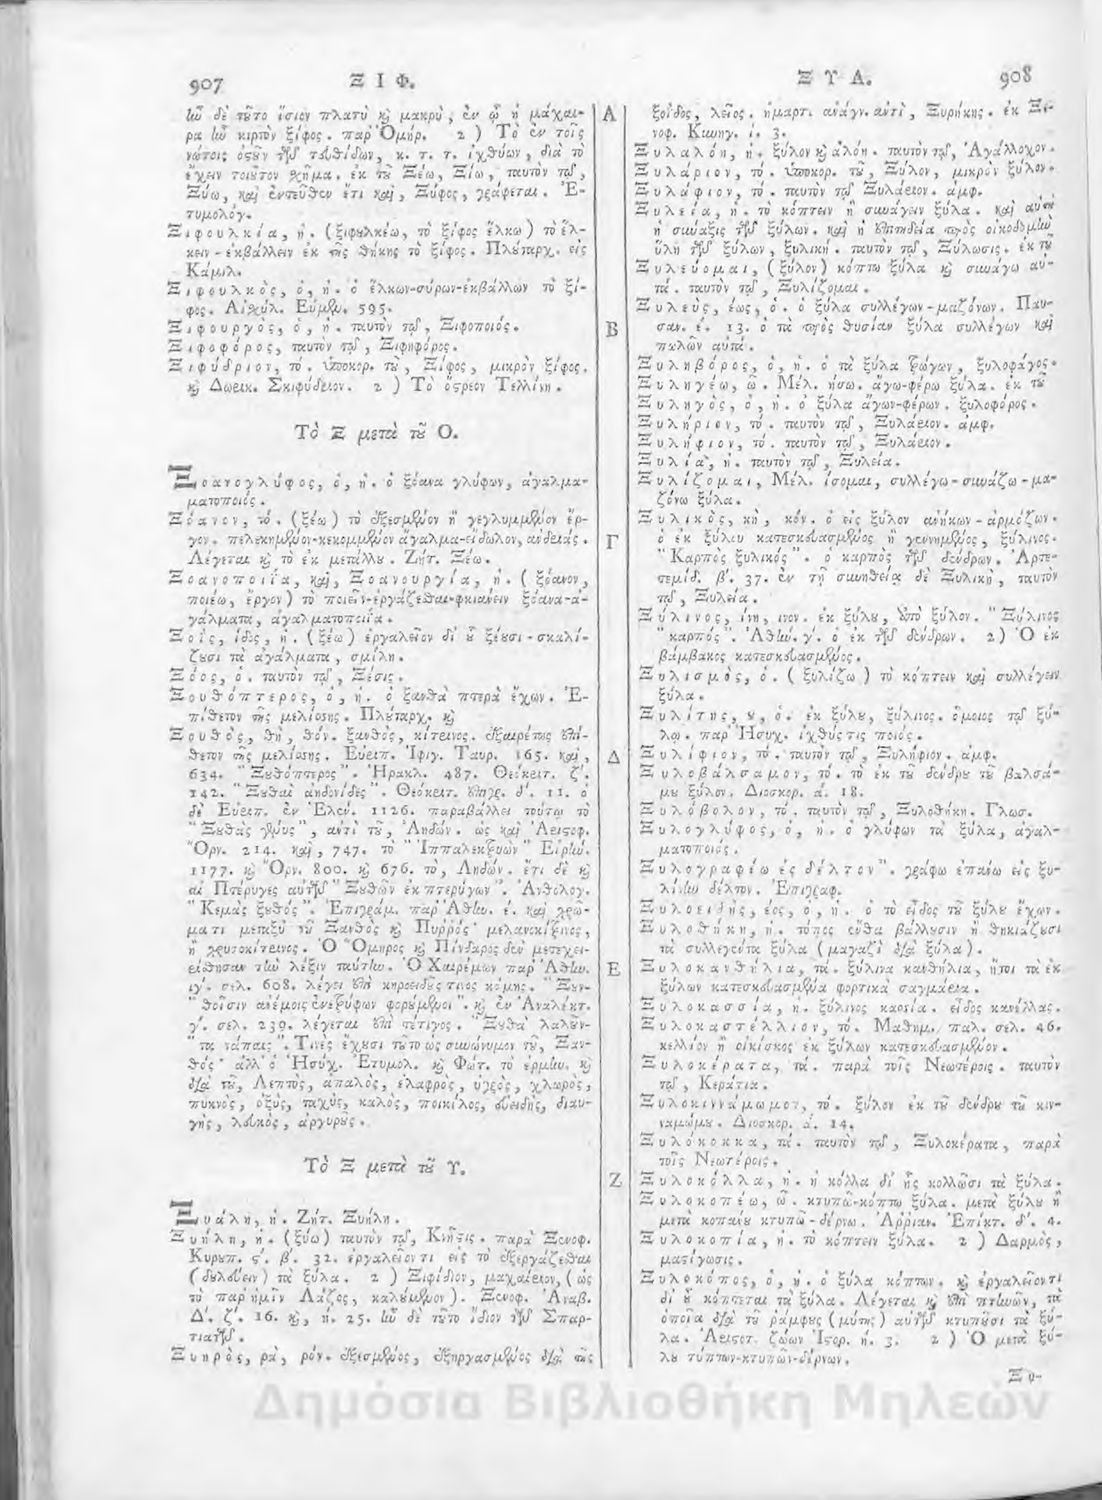 907 Ξ Ι Φ.
ἰῶ δὲ τοῦτο ἴσιον πλατὺ καὶ μακρὺ, ἐν ᾧ ἡ μάχαι-
ρα ἰῶ κιρτὸν ξίφος. παρ' Ὁμήρ. 2) Τὸ ἐν τοῖς
νώτοις ὀστοῦν τῶν τευθίδων, κ. τ. τ. ἰχθύων, διὰ τὸ
ἔχειν τοιοῦτον σχῆμα. ἐκ τοῦ Ξέω, Ξίω, ταυτὸν τῷ,
Ξύω, καὶ ἐντεῦθεν ἔτι καὶ, Ξύφος, γράφεται. Ἐ-
τυμολόγ.
Ξιφουλκία, ἡ. (ξιφουλκέω, τὸ ξίφος ἕλκω) τὸ ἕλ-
κειν-ἐκβάλλειν ἐκ τῆς θήκης τὸ ξίφος. Πλούταρχ. εἰς
Κάμιλ.
Ξιφουλκὸς, ὁ, ἡ. ὁ ἕλκων-σύρων-ἐκβάλλων τὸ ξί-
φος. Αἰσχύλ. Εὐμεν. 595.
Ξιφουργὸς, ὁ, ἡ. ταυτὸν τῷ, Ξιφοποιός.
Ξιφοφόρος, ταυτὸν τῷ, Ξιφηφόρος.
Ξιφύδριον, τό. ὑποκορ. τοῦ, Ξίφος, μικρὸν ξίφος.
καὶ Δωρικ. Σκιφύδριον. 2) Τὸ ὄστρεον Τελλίνη.
Τὸ Ξ μετὰ τοῦ Ο.
Ξοανογλύφος, ὁ, ἡ. ὁ ξόανα γλύφων, ἀγαλμα-
ματοποιός.
Ξόανον, τό. (ξέω) τὸ ἐξεσμένον ἢ γεγλυμμένον ἔρ-
γον. πελεκημένον-κεκομμένον ἄγαλμα-εἴδωλον, ἀνδριάς.
Λέγεται καὶ τὸ ἐκ μετάλλου. Ζήτ. Ξέω.
Ξοανοποιΐα, καὶ, Ξοανουργία, ἡ. (ξόανον,
ποιέω, ἔργον) τὸ ποιεῖν-ἐργάζεσθαι-φκιάνειν ξόανα-ἀ-
γάλματα, ἀγαλματοποιΐα.
Ξοῒς, ίδος, ἡ. (ξέω) ἐργαλεῖον δι' οὗ ξέουσι-σκαλί-
ζουσι τὰ ἀγάλματα, σμίλη.
Ξόος, ὁ. ταυτὸν τῷ, Ξέσις.
Ξουθόπτερος, ὁ, ἡ. ὁ ξανθὰ πτερὰ ἔχων. Ἐ-
πίθετον τῆς μελίσσης. Πλούταρχ. καὶ
Ξουθὸς, θὴ, θόν. ξανθὸς, κίτρινος. ἐξαιρέτως ἐπί-
θετον τῆς μελίσσης. Εὐριπ. Ἰφιγ. Ταυρ. 165. καὶ,
634. "Ξουθόπτερος". Ἡρακλ. 487. Θεόκριτ. ζ'.
142. "Ξουθαὶ ἀηδονίδες". Θεόκριτ. ἐπιγρ. δ'. 11. ὁ
δὲ Εὐριπ. ἐν Ἑλέν. 1126. παραβάλλει τούτῳ τὸ
"Ξουθᾶς γένυς", ἀντὶ τοῦ, Ἀηδών. ὡς καὶ Ἀριστοφ.
Ὄρν. 214. καὶ, 747. τὸ "Ἱππαλεκτρυὼν" Εἰρήν.
1177. καὶ Ὄρν. 800. καὶ 676. τὸ, Ἀηδών. ἔτι δὲ καὶ
αἱ Πτέρυγες αὐτῶν "Ξουθῶν ἐκ πτερύγων". Ἀνθολογ.
"Κεμὰς ξουθός". Ἐπιγράμ. παρ' Ἀθήν. έ. καὶ χρῶ-
μα τι μεταξὺ τοῦ Ξανθὸς καὶ Πυῤῥός· μελανοκίτρινος,
ἢ χρυσοκίτρινος. Ὁ Ὅμηρος καὶ Πίνδαρος δὲν μετεχει-
ρίσθησαν τὴν λέξιν ταύτην. Ὁ Χαιρέμων παρ' Ἀθήν.
ιγ'. σελ. 608. λέγει ἐπὶ κηροειδοῦς τινὸς κόμης. "Ξουν-
"θοῖσιν ἀνέμοις ἐνετρύφων φορούμενοι". καὶ ἐν Ἀναλέκτ.
γ'. σελ. 239. λέγεται ἐπὶ τέτιγος. "Ξουθὰ λαλοῦν-
"τα νάπαις". Τινὲς ἔχουσι τοῦτο ὡς συνώνυμον τοῦ, Ξαν-
θός· ἀλλ' ὁ Ἡσύχ. Ἐτυμολ. καὶ Φώτ. τὸ ἑρμήν. καὶ
διὰ τοῦ, Λεπτὸς, ἁπαλὸς, ἐλαφρὸς, ὑγρὸς, χλωρὸς,
πυκνὸς, ὀξὺς, ταχὺς, καλὸς, ποικίλος, εὐειδὴς, διαυ-
γὴς, λευκὸς, ἀργυροῦς.
Τὸ Ξ μετὰ τοῦ Υ.
Ξυάλη, ἡ. Ζήτ. Ξυήλη.
Ξυήλη, ἡ. (ξύω) ταυτὸν τῷ, Κνῆστις. παρὰ Ξενοφ.
Κυρυπ. ς'. β'. 32. ἐργαλεῖόν τι εἰς τὸ ἐξεργάζεσθαι
(δουλεύειν) τὰ ξύλα. 2) Ξιφίδιον, μαχαίριον, (ὡς
τὸ παρ' ἡμῖν Λάζος, καλούμενον). Ξενοφ. Ἀναβ.
Δ'. ζ'. 16. καὶ, ή. 25. ἰῶ δὲ τοῦτο ἴδιον τῶν Σπαρ-
τιατῶν.
Ξυηρὸς, ρὰ, ρόν. ἐξεσμένος, ἐξηργασμένος διὰ τῆς
Α
Β
Γ
Δ
Ε
Ζ
Ξ Υ Λ. 908
ξοΐδος, λεῖος. ἡμαρτ. ἀνάγν. ἀντὶ, Ξυρήκης. ἐκ Ξε-
νοφ. Κυνηγ. ί. 3.
Ξυλαλόη, ἡ. ξύλον καὶ ἀλόη. ταυτὸν τῷ, Ἀγάλλοχον.
Ξυλάριον, τό. ὑποκορ. τοῦ, Ξύλον, μικρὸν ξύλον.
Ξυλάφιον, τό. ταυτὸν τῷ Ξυλάριον. ἀμφ.
Ξυλεία, ἡ. τὸ κόπτειν ἢ συνάγειν ξύλα. καὶ αὐτὴ
ἡ σύναξις τῶν ξύλων. καὶ ἡ ἐπιτηδεία πρὸς οἰκοδομὴν
ὕλη τῶν ξύλων, ξυλική. ταυτὸν τῷ, Ξύλωσις. ἐκ τοῦ
Ξυλεύομαι, (ξύλον) κόπτω ξύλα καὶ συνάγω αὐ-
τά. ταυτὸν τῷ, Ξυλίζομαι.
Ξυλεὺς, έως, ὁ. ὁ ξύλα συλλέγων-μαζόνων. Παυ-
σαν. έ. 13. ὁ τὰ πρὸς θυσίαν ξύλα συλλέγων καὶ
πωλῶν αὐτά.
Ξυληβόρος, ὁ, ἡ. ὁ τὰ ξύλα τρώγων, ξυλοφάγος.
Ξυληγέω, ῶ. Μέλ. ήσω. ἄγω-φέρω ξύλα. ἐκ τοῦ
Ξυληγὸς, ὁ, ἡ. ὁ ξύλα ἄγων-φέρων. ξυλοφόρος.
Ξυλήριον, τό. ταυτὸν τῷ, Ξυλάριον. ἀμφ.
Ξυλήφιον, τό. ταυτὸν τῷ, Ξυλάριον.
Ξυλία, ἡ. ταυτὸν τῷ, Ξυλεία.
Ξυλίζομαι, Μέλ. ίσομαι, συλλέγω-συνάζω-μα-
ζόνω ξύλα.
Ξυλικὸς, κὴ, κόν. ὁ εἰς ξύλον ἀνήκων-ἁρμόζων.
ὁ ἐκ ξύλου κατεσκευασμένος ἢ γενόμενος, ξύλινος.
"Καρπὸς ξυλικός". ὁ καρπὸς τῶν δένδρων. Ἀρτε-
σεμίδ. β'. 37. ἐν τῇ συνηθείᾳ δὲ Ξυλικὴ, ταυτὸν
τῷ, Ξυλεία.
Ξύλινος, ίνη, ινον. ἐκ ξύλου, ἀπὸ ξύλον. "Ξύλινος
"καρπός". Ἀθήν. γ'. ὁ ἐκ τῶν δένδρων. 2) Ὁ ἐκ
βάμβακος κατεσκευασμένος.
Ξυλισμὸς, ὁ. (ξυλίζω) τὸ κόπτειν καὶ συλλέγειν
ξύλα.
Ξυλίτης, ου, ὁ. ἐκ ξύλου, ξύλινος. ὅμοιος τῷ ξύ-
λῳ. παρ' Ἡσυχ. ἰχθύς τις ποιός.
Ξυλίφιον, τό. ταυτὸν τῷ, Ξυλήφιον. ἀμφ.
Ξυλοβάλσαμον, τό. τὸ ἐκ τοῦ δένδρου τοῦ βαλσά-
μου ξύλον. Διοσκορ. ά. 18.
Ξυλόβολον, τό. ταυτὸν τῷ, Ξυλοθήκη. Γλωσ.
Ξυλογλύφος, ὁ, ἡ. ὁ γλύφων τὰ ξύλα, ἀγαλ-
ματοποιός.
Ξυλογραφέω ἐς δέλτον". γράφω ἐπάνω εἰς ξυ-
λίνην δέλτον. Ἐπιγραφ.
Ξυλοειδὴς, έος, ὁ, ἡ. ὁ τὸ εἶδος τοῦ ξύλου ἔχων.
Ξυλοθήκη, ἡ. τόπος ἔνθα βάλλουσιν ἢ θηκιάζουσι
τὰ συλλεγέντα ξύλα (μαγαζὶ διὰ ξύλα).
Ξυλοκανθήλια, τα. ξύλινα κανθήλια, ἤτοι τὰ ἐκ
ξύλων κατεσκευασμένα φορτικὰ σαγμάρια.
Ξυλοκασσία, ἡ. ξύλινος κασσία. εἶδος κανέλλας.
Ξυλοκαστέλλιον, τό. Μαθημ. παλ. σελ. 46.
κελλίον ἢ οἰκίσκος ἐκ ξύλων κατεσκευασμένον.
Ξυλοκέρατα, τά. παρὰ τοῖς Νεωτέροις. ταυτὸν
τῷ, Κεράτια.
Ξυλοκιννάμωμον, τό. ξύλον ἐκ τοῦ δένδρου τοῦ κιν-
ναμώμου. Διοσκορ. ά. 14.
Ξυλόκοκκα, τά. ταυτὸν τῷ, Ξυλοκέρατα, παρὰ
τοῖς Νεωτέροις.
Ξυλοκόλλα, ἡ. ἡ κόλλα δι' ἧς κολλῶσι τὰ ξύλα.
Ξυλοκοπέω, ῶ. κτυπῶ-κόπτω ξύλα. μετὰ ξύλου ἢ
μετὰ κοπάνου κτυπῶ-δέρνω. Ἀῤῥιαν. Ἐπίκτ. δ'. 4.
Ξυλοκοπία, ἡ. τὸ κόπτειν ξύλα. 2) Δαρμὸς,
μαστίγωσις.
Ξυλοκόπος, ὁ, ἡ. ὁ ξύλα κόπτων. καὶ ἐργαλεῖόν τι
δι' οὗ κόπτεται τὰ ξύλα. Λέγεται καὶ ἐπὶ πτηνῶν, τὰ
ὁποῖα διὰ τοῦ ῥάμφους (μύτης) αὐτῶν κτυποῦσι τὰ ξύ-
λα. Ἀριστοτ. ζώων Ἱστορ. ή. 3. 2) Ὁ μετὰ ξύ-
λου τύπτων-κτυπῶν-δέρνων.
Ξυ-
Δημόσια Βιβλιοθήκη Μηλεών